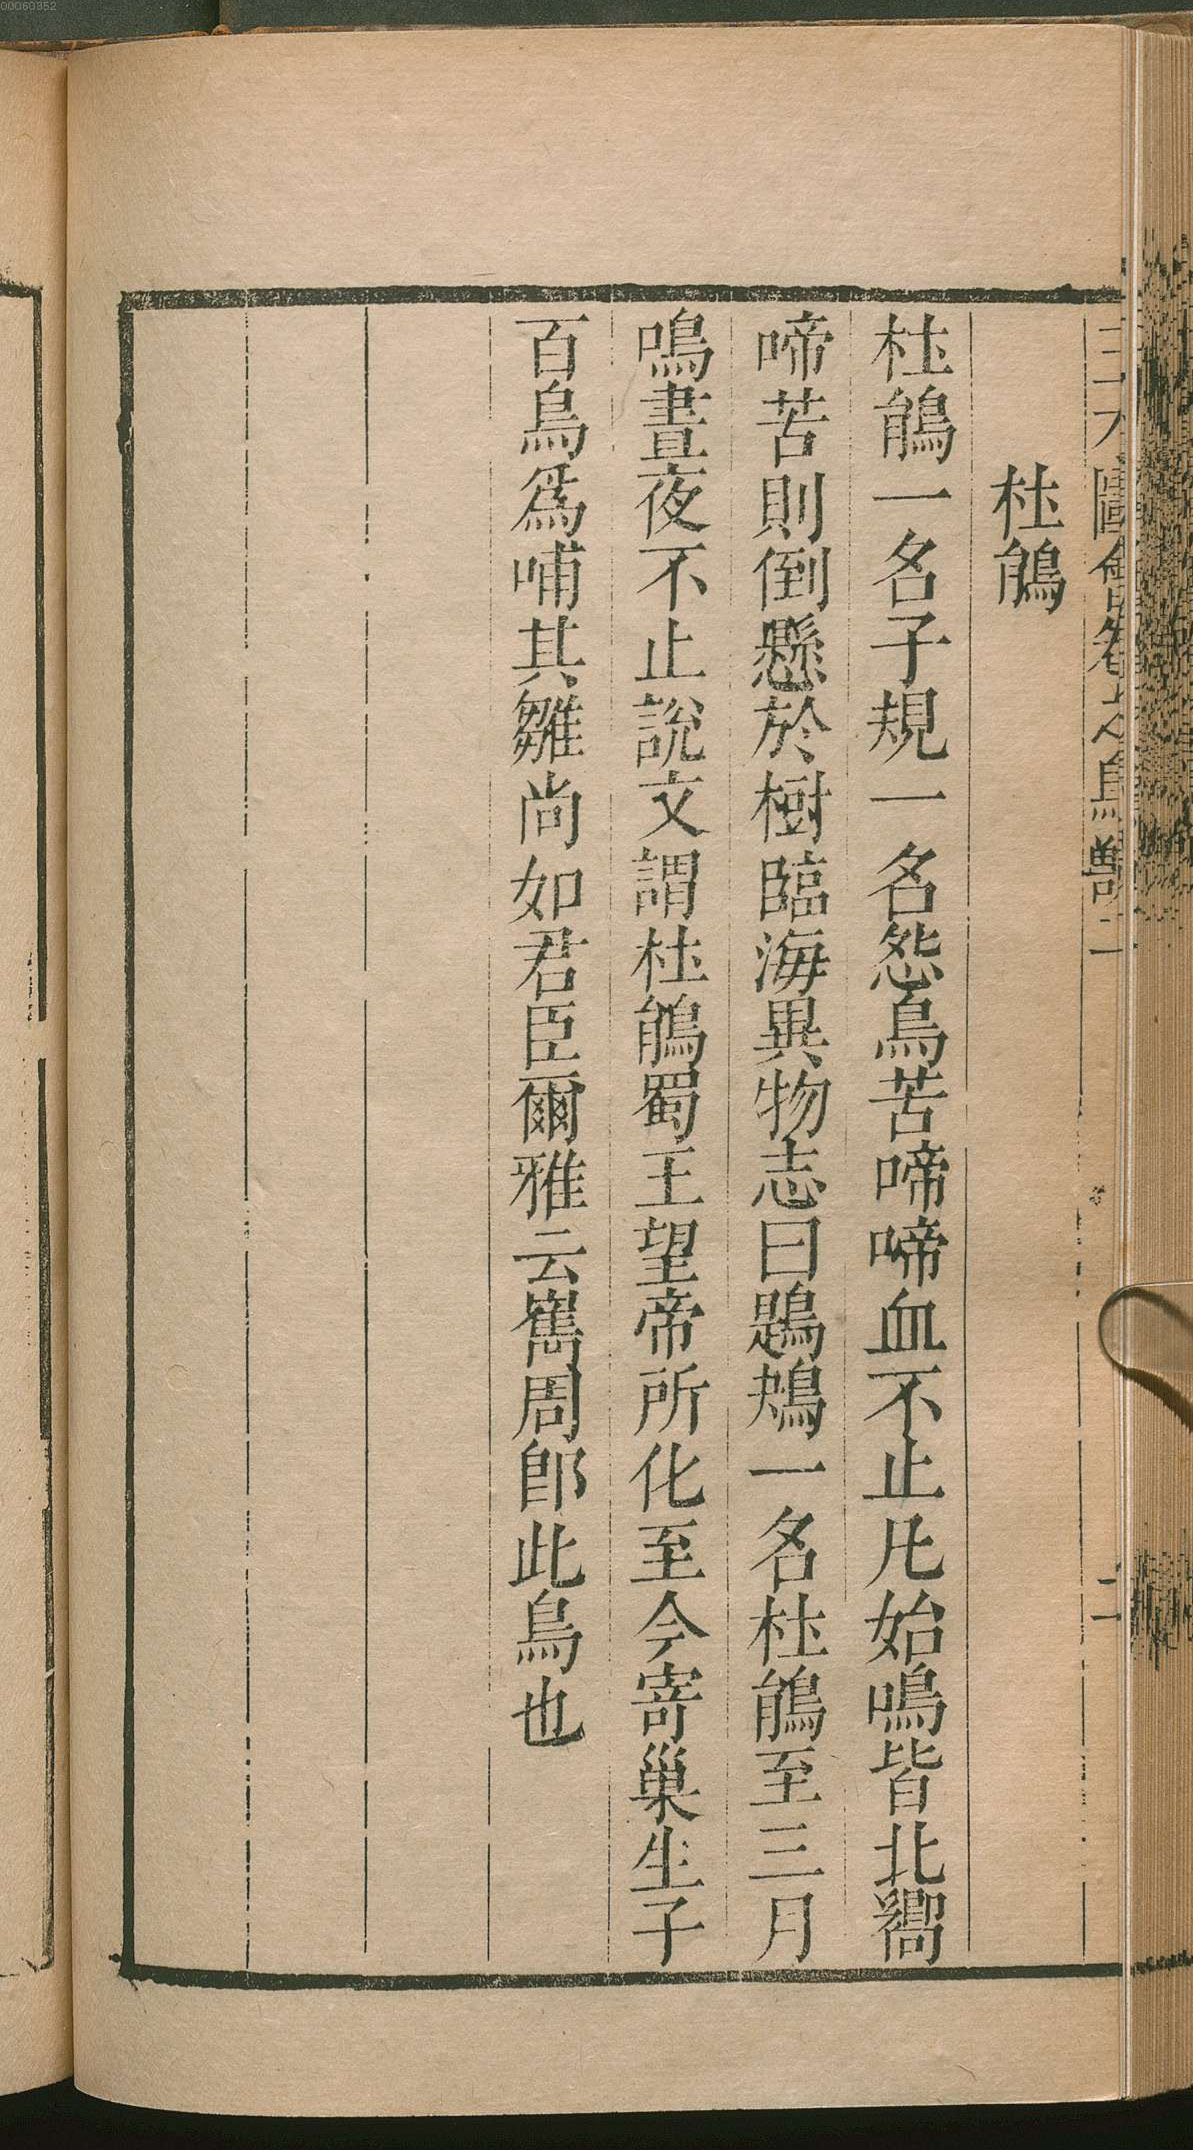 00060352
三才圖會卷之鳥獸二
二
杜鵑
杜鵑一名子規一名怨鳥苦啼啼血不止凡始鳴皆北嚮
啼苦則倒懸於樹臨海異物志曰鶗鴂一名杜鵑至三月
鳴晝夜不止說文謂杜鵑蜀王望帝所化至今寄巢生子
百鳥爲哺其雛尚如君臣爾雅云巂周卽此鳥也